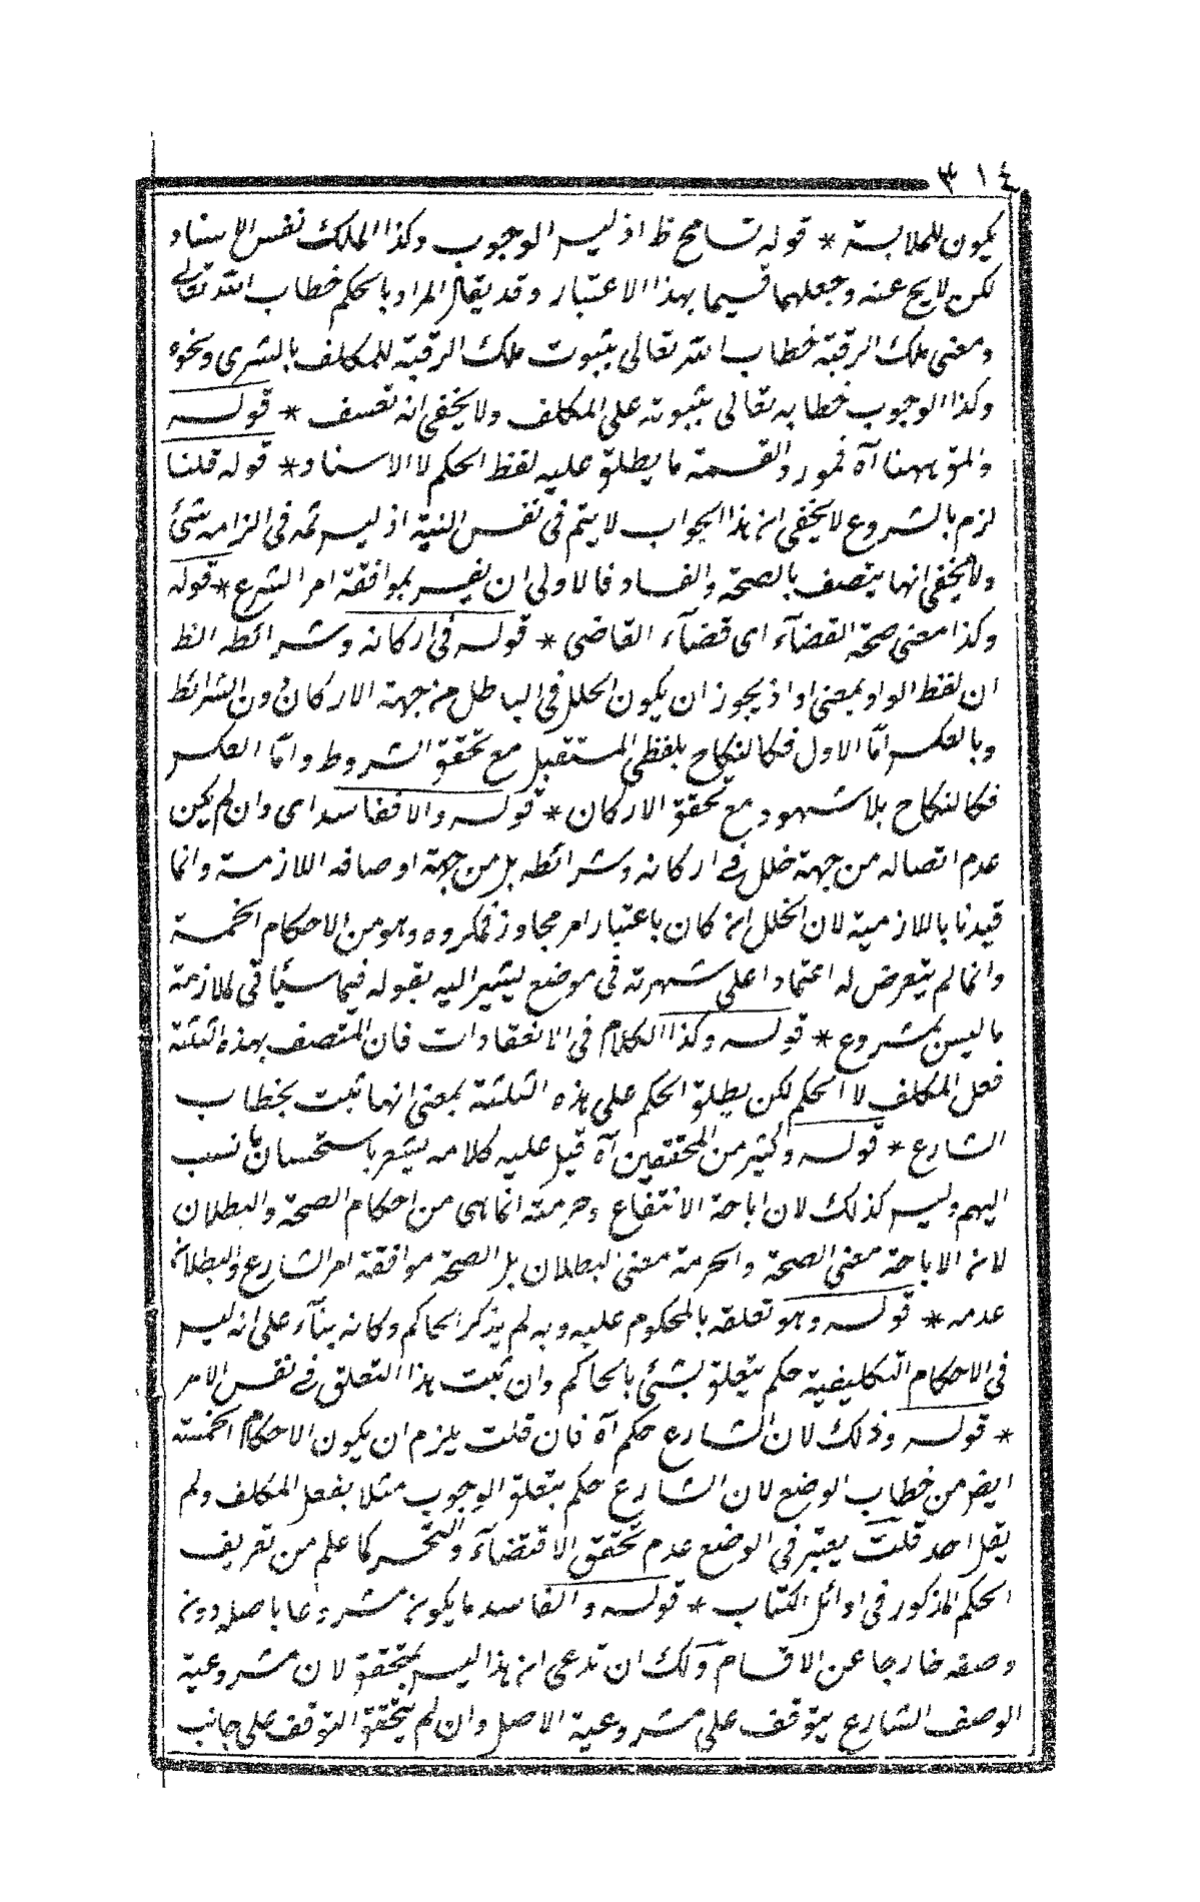 ٣١٤
يكون للملابسة * قوله تسامح ظ اذ ليس الوجوب وكذا الملك نفس الاسناد
لكن لايح عنه وجعلهما قسيما بهذا الاعتبار وقد يقال المراد بالحكم خطاب الله تعالى
ومعنى ملك الرقبة خطاب الله تعالى بثبوت ملك الرقبة للمكلف بالشرى ونحوه
وكذا الوجوب خطابه تعالى بثبوته على المكلف ولا يخفى انه تعسف * قوله
والمق ههنا آه فمورد القسمة ما يطلق عليه لفظ الحكم لا الاسناد * قوله قلنا
لزم بالشروع لا يخفى ان هذا الجواب لا يتم فى نفس النية اذ ليس ثمه فى الزامه شئ
ولا يخفى انها يتصف بالصحة والفساد فالاولى ان يفسر بموافقة امر الشرع * قوله
وكذا معنى صحة القضآء اى قضآء القاضى * قوله فى اركانه وشرائطه الظ
ان لفظ الواو بمعنى او اذ يجوز ان يكون الخلل فى الباطل من جهة الاركان دون الشرائط
وبالعكس امّا الاول فكالنكاح بلفظى المستقبل مع تحقق الشروط وامّا العكس
فكالنكاح بلا شهود مع تحقق الاركان * قوله والا ففاسد اى وان لم يكن
عدم اتصاله من جهة خلل فى اركانه وشرائطه بل من جهة اوصافه اللازمة وانما
قيدنا باللازمية لان الخلل ان كان باعتبار امر مجاوز فمكروه وهو من الاحكام الخمسة
وانما لم يتعرض له اعتمادا على شهرته فى موضع يشير اليه بقوله فيما سيأتى لملازمة
ما ليس بمشروع * قوله وكذا الكلام فى الانعقادات فان المتصف بهذه الثلثة
فعل المكلف لا الحكم لكن يطلق الحكم على هذه الثلثة بمعنى انها ثبت بخطاب
الشارع * قوله وكثير من المحققين آه قيل عليه كلامه يشعر باستحسان ما نسب
اليهم وليس كذلك لان اباحة الانتفاع وحرمته انما هى من احكام الصحة والبطلان
لا ان الاباحة معنى الصحة والحرمة معنى البطلان بل الصحة موافقة امر الشارع والبطلان
عدمه * قوله وهو تعلقه بالمحكوم عليه وبه لم يذكر الحاكم وكانه بنآء على انه ليس
فى الاحكام التكليفية حكم يتعلق بشئ بالحاكم وان ثبت هذا التعلق فى نفس الامر
* قوله وذلك لان الشارع حكم آه فان قلت يلزم ان يكون الاحكام الخمسة
ايضر من خطاب الوضع لان الشارع حكم بتعلق الوجوب مثلا بفعل المكلف ولم
يقل احد قلت يعتبر فى الوضع عدم تحقق الاقتضآء والتخير كما علم من تعريف
الحكم المذكور فى اوائل الكتاب * قوله والفاسد ما يكون مشروعا باصله دون
وصفه خارجا عن الاقسام ولك ان تدعى ان هذا ليس بمتحقق لان مشروعية
الوصف الشارع يتوقف على مشروعية الاصل وان لم يتحقق التوقف على جانب